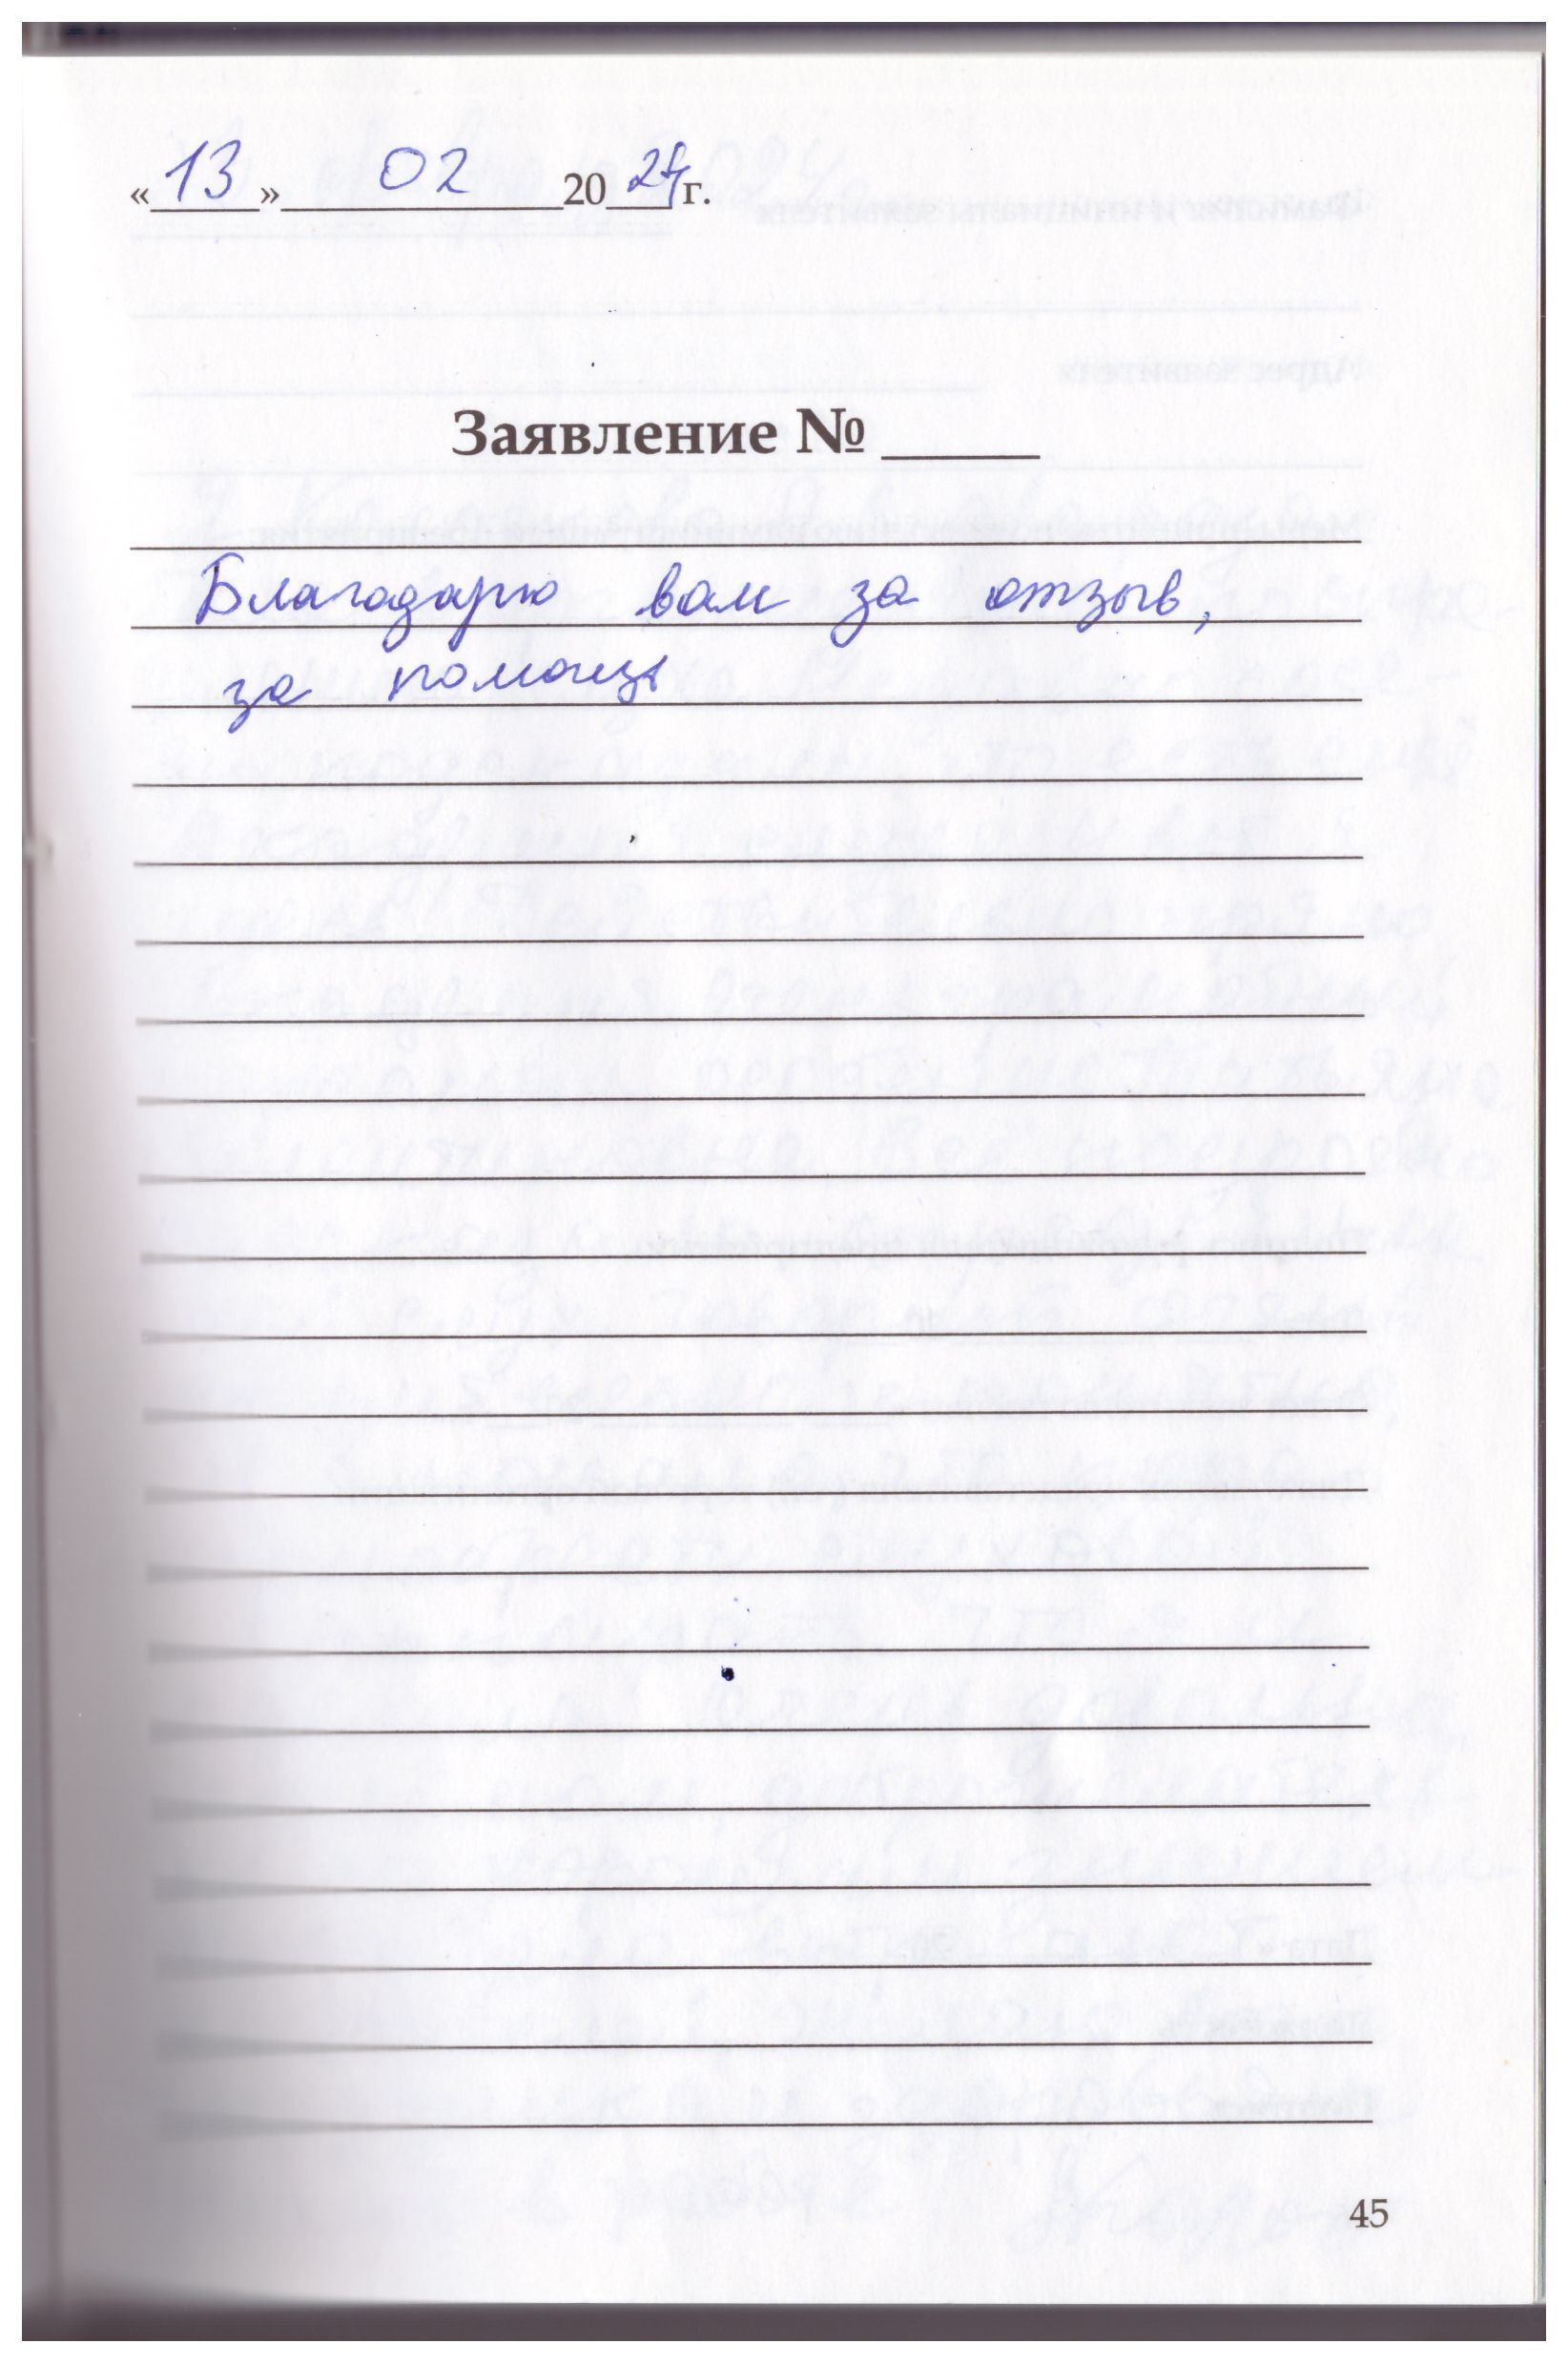 «13» 02 2024 г.
Заявление № 
Благодарю вам за отзыв,
за помощь
45